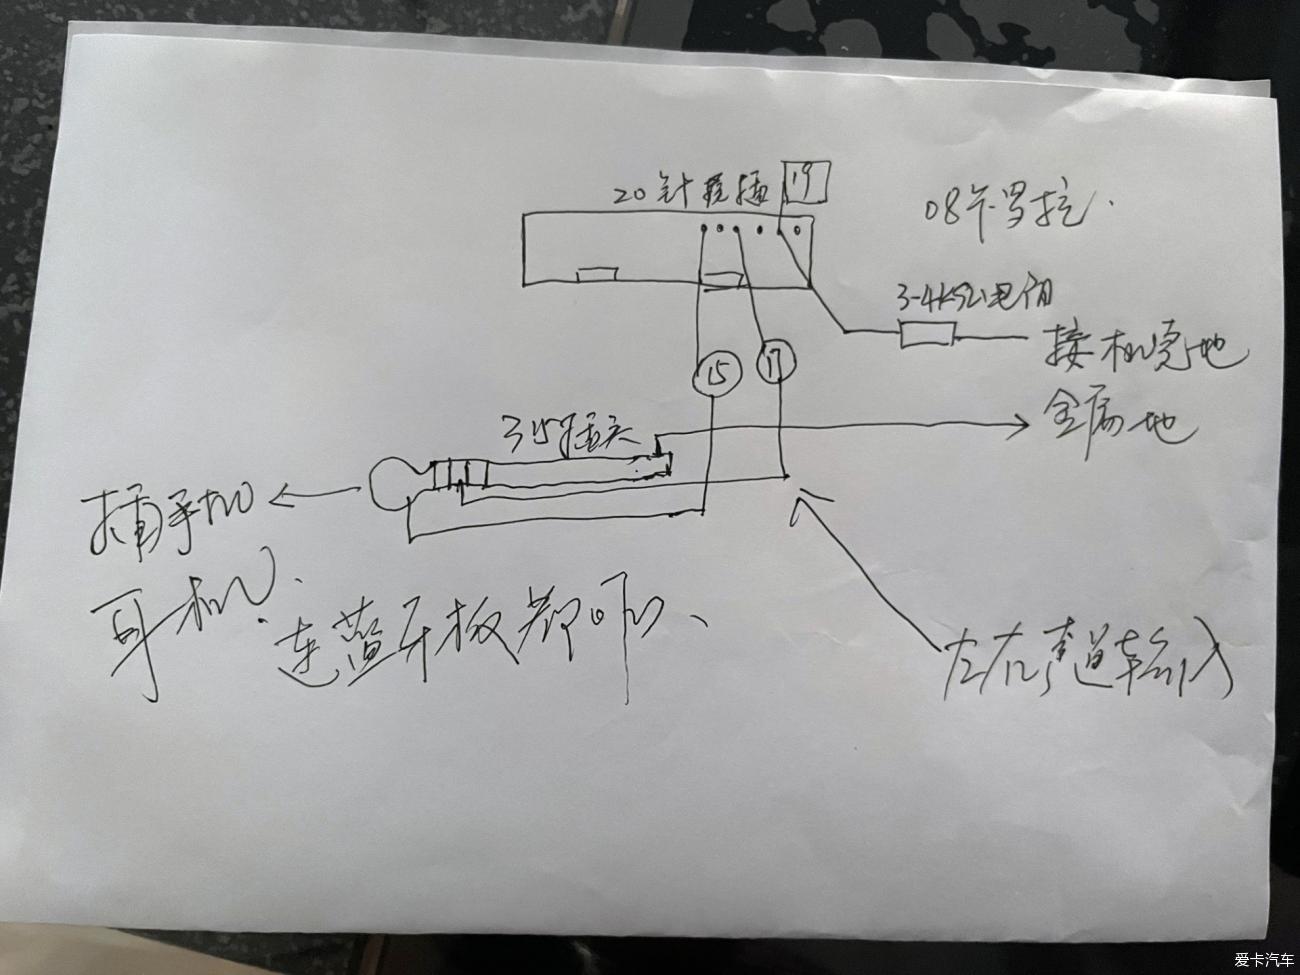 20针接插 19
08卡罗拉.
3-4KΩ电阻
接机壳地
15 17
金属地
3.5插头
插手机
耳机.
连蓝牙板都响、
左右声道输入
爱卡汽车